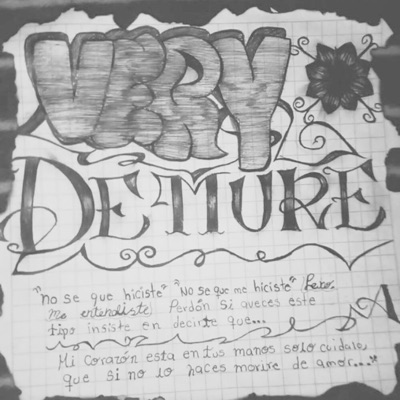 VERY
DEMURE
"no se que hiciste" "No se que me hiciste" Pero
Me entendiste Perdón Si aveces este
tipo insiste en decirte que...
Mi Corazón esta en tus manos solo cuidale,
que si no lo haces morire de amor..."